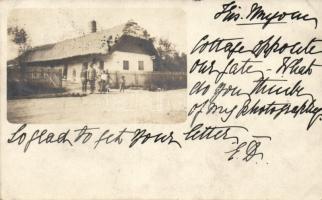 Cottage opposite
our gate - What
do you think
of my photography
So glad to get your letter
E.D.